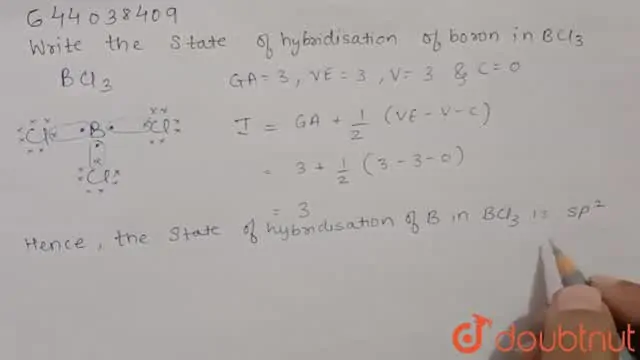 644038409
Write the State of hybridisation of boron in BCl3
BCl3
GA = 3, VE = 3, V = 3 & C = 0
Cl B Cl
Cl
I = GA + 1/2 (VE - V - C)
= 3 + 1/2 (3 - 3 - 0)
= 3
Hence, the State of hybridisation of B in BCl3 is sp²
doubtnut